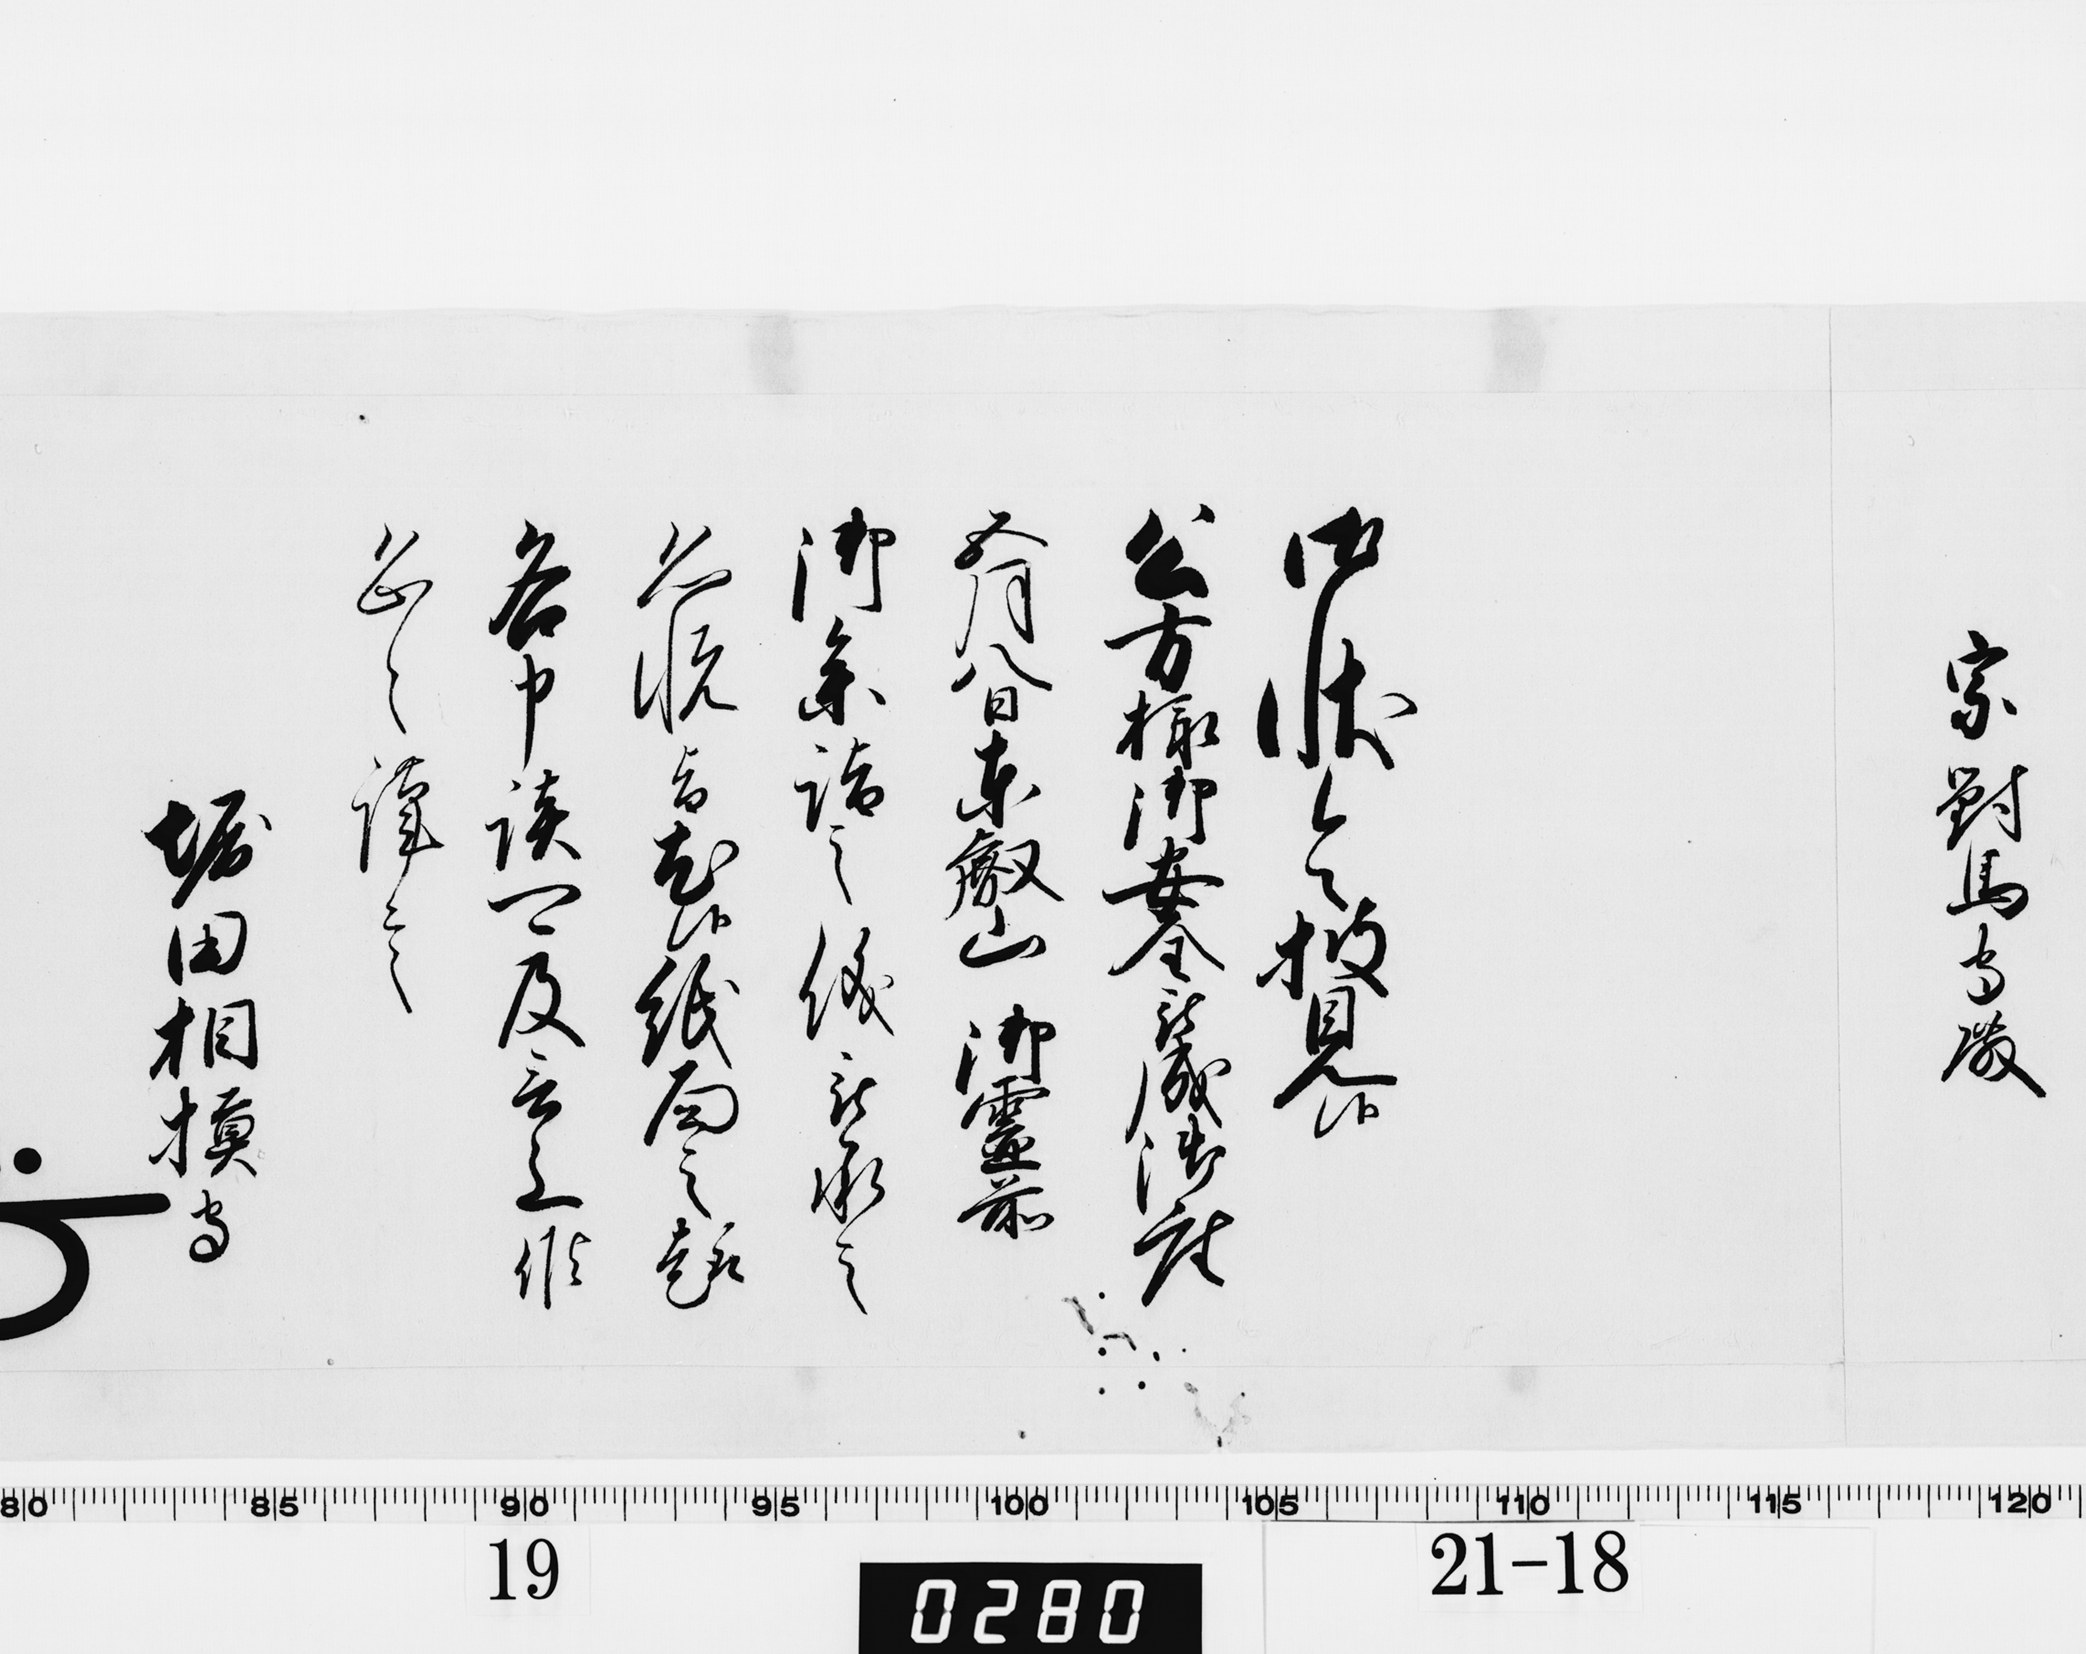 宗對馬守殿
御状令披見候
公方様御安全被成御座
五月八日東叡山 御霊前
御参詣之儀被承之
恐悦旨尤候紙面之趣
各申談可及言上候
恐々謹言
堀田相模守
80 85 90 95 100 105 110 115 120
19
0280
21-18